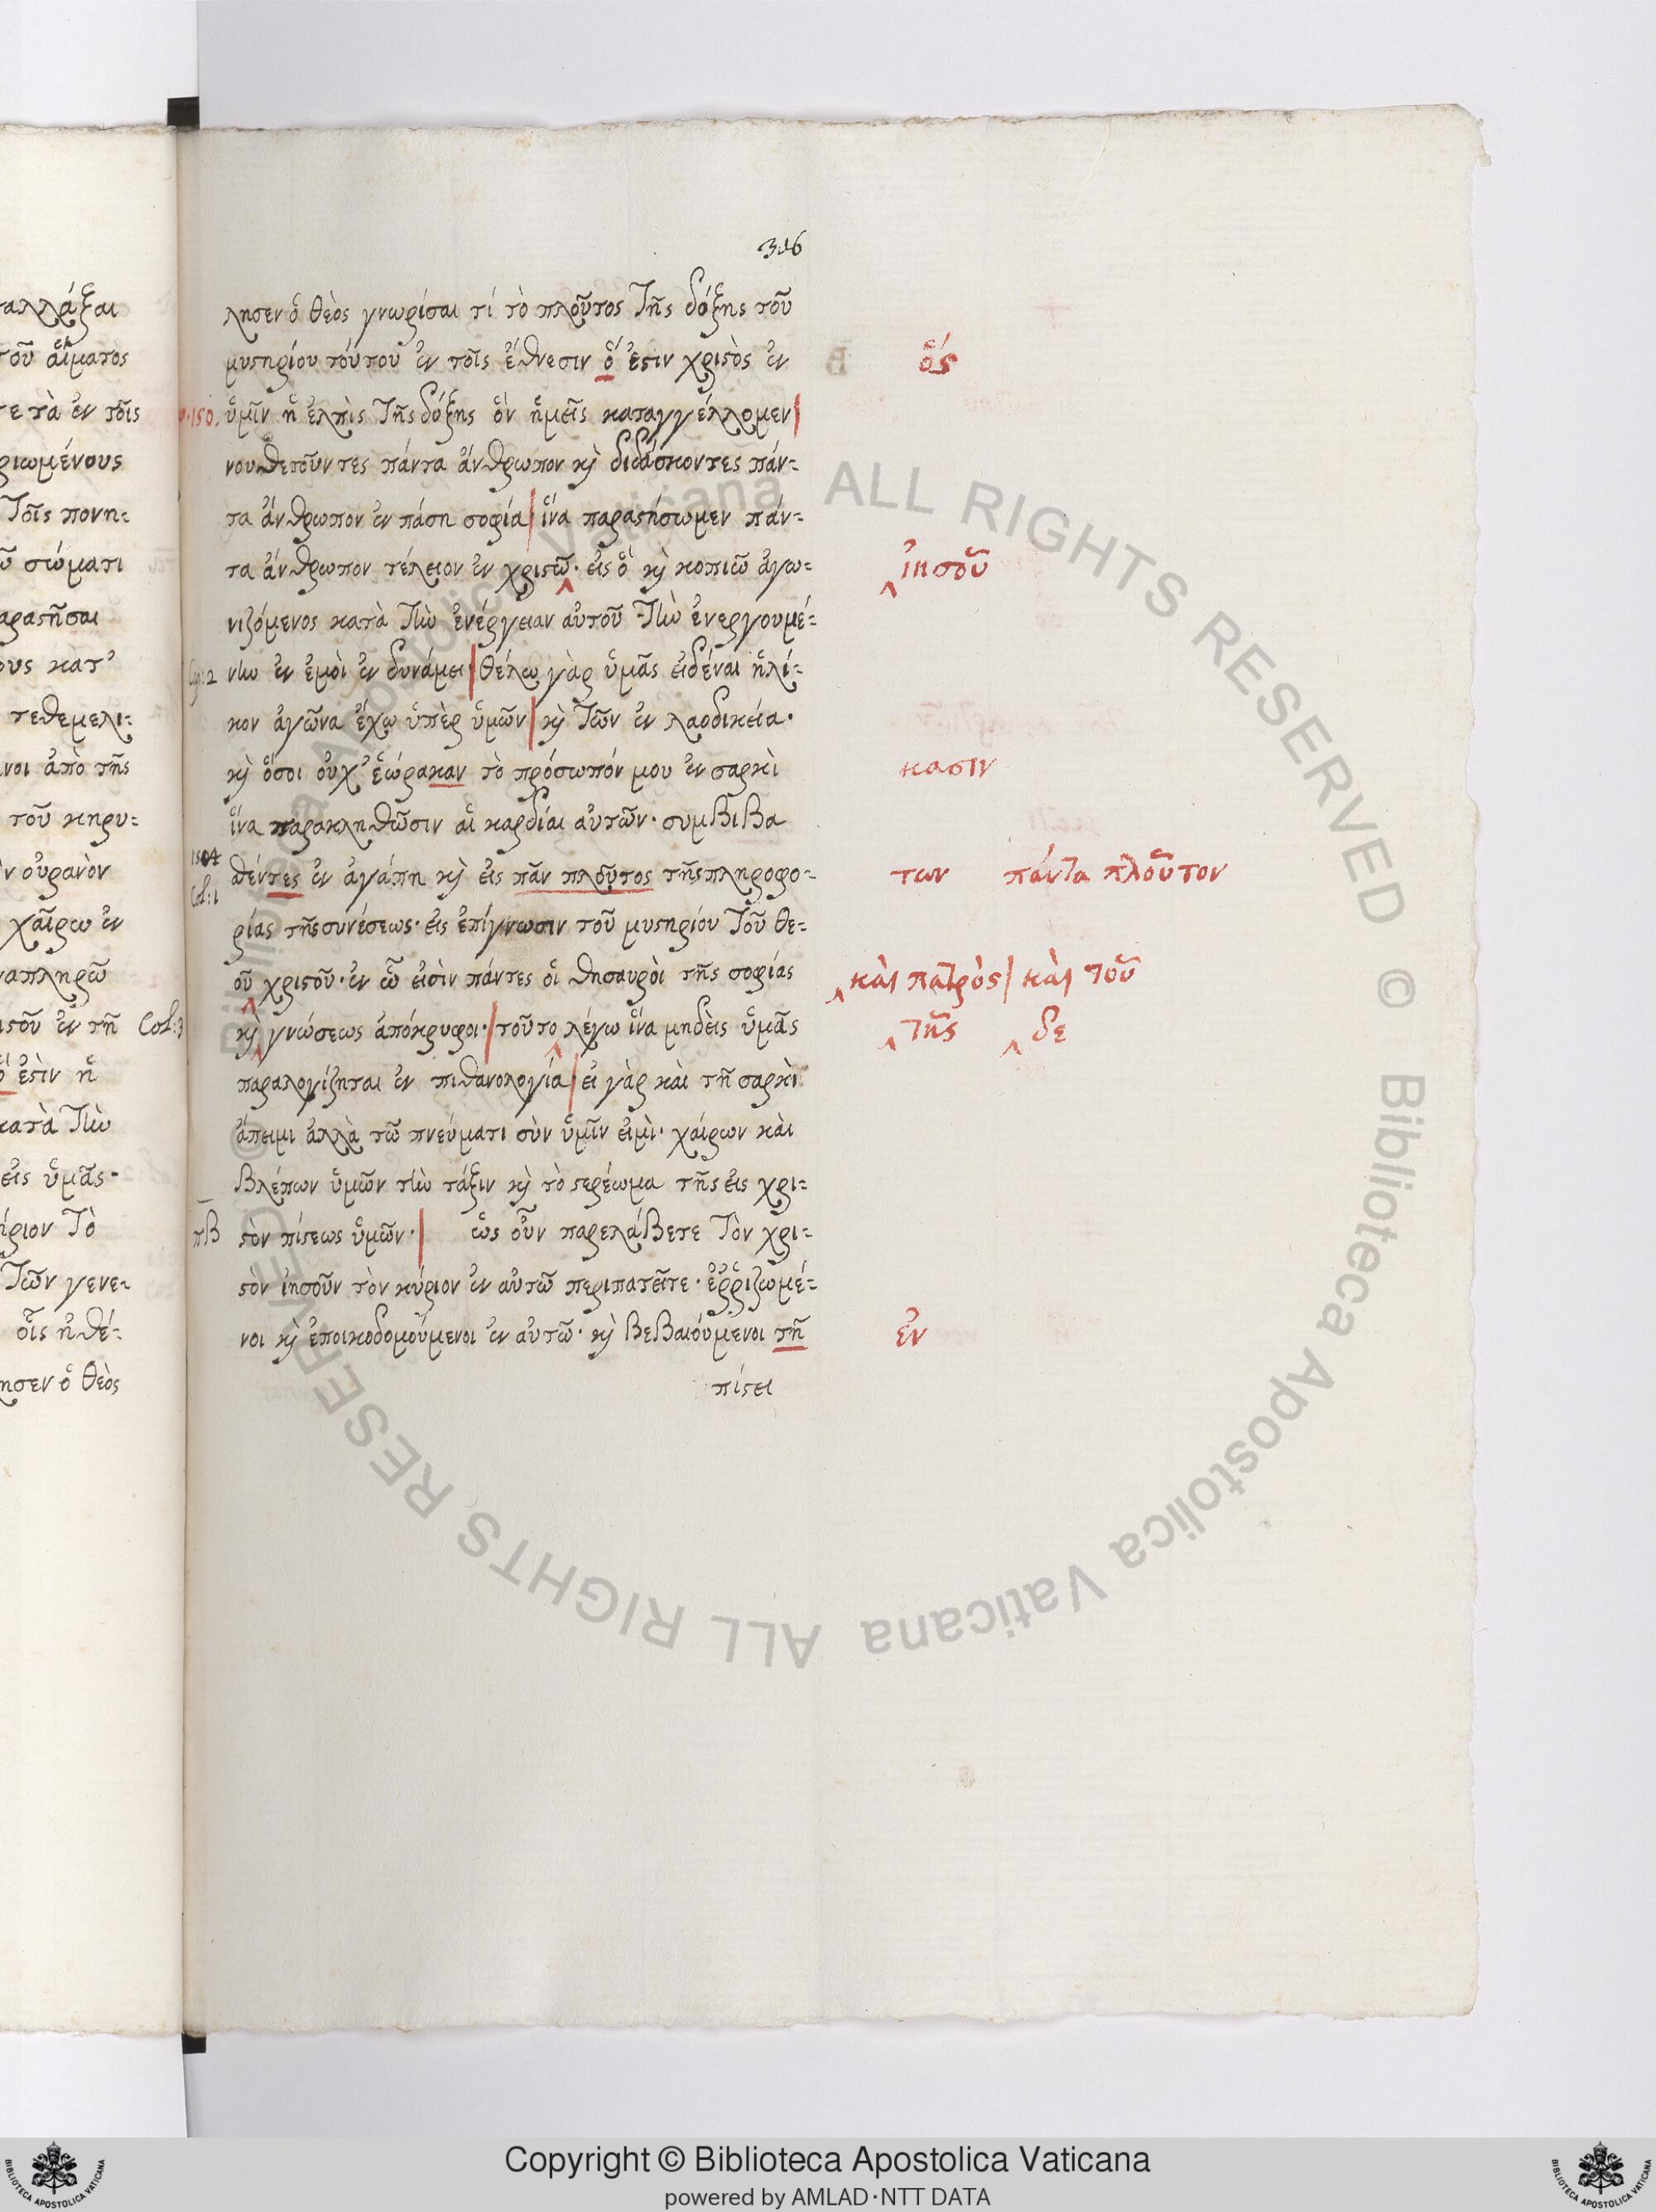 316
λησεν ὁ θεὸς γνωρίσαι τί τὸ πλοῦτος τῆς δόξης τοῦ
μυστηρίου τούτου ἐν τοῖς ἔθνεσιν ὅ ἐστιν χριστὸς ἐν ὅς
ὑμῖν ἡ ἐλπὶς τῆς δόξης ὃν ἡμεῖς καταγγέλλομεν|
νουθετοῦντες πάντα ἄνθρωπον κὶ διδάσκοντες πάν=
τα ἄνθρωπον ἐν πάση σοφία| ἵνα παραστήσωμεν πάν=
τα ἄνθρωπον τέλειον ἐν χριστῶ· εἰς ὃ κὶ κοπιῶ ἀγω= ‸ἰησοῦ
νιζόμενος κατὰ τὴν ἐνέργειαν αὐτοῦ τὴν ἐνεργουμέ=
νην ἐν ἐμοὶ ἐν δυνάμει·| θέλω γὰρ ὑμᾶς εἰδέναι ἡλί=
κον ἀγῶνα ἔχω ὑπὲρ ὑμῶν| κὶ τῶν ἐν λαοδικεία·
κὶ ὅσοι οὐχ' ἑώρακαν τὸ πρόσωπόν μου ἐν σαρκὶ κασιν
ἵνα παρακληθῶσιν αἱ καρδίαι αὐτῶν· συμβιβα
1504
Col: 1
θέντες ἐν ἀγάπη κὶ εἰς πᾶν πλοῦτος τῆς πληροφο= των πάντα πλοῦτον
ρίας τῆς συνέσεως· εἰς ἐπίγνωσιν τοῦ μυστηρίου τοῦ θε=
οῦ χριστοῦ· ἐν ὧ εἰσὶν πάντες οἱ θησαυροὶ τῆς σοφίας ‸καὶ πατρὸς| καὶ τοῦ
κὶ‸ γνώσεως ἀπόκρυφοι·| τοῦτο‸ λέγω ἵνα μηδεὶς ὑμᾶς ‸τῆς ‸δε
παραλογίζηται ἐν πιθανολογία| εἰ γὰρ καὶ τῆ σαρκὶ
ἄπειμι ἀλλὰ τῶ πνεύματι σὺν ὑμῖν εἰμὶ· χαίρων καὶ
βλέπων ὑμῶν τὴν τάξιν κὶ τὸ στερέωμα τῆς εἰς χρι=
πβ στὸν πίστεως ὑμῶν·| ὡς οὖν παρελάβετε τὸν χρι=
στὸν ἰησοῦν τὸν κύριον ἐν αὐτῶ περιπατεῖτε· ἐῤῥιζωμέ=
νοι κὶ ἐποικοδομούμενοι ἐν αὐτῶ· κὶ βεβαιούμενοι τῆ ἐν
πίστει
ταλλάξαι
τοῦ αἵματος
τε τὰ ἐν τοῖς
ριωμένους
τοῖς πονη=
σώματι
παραστῆσαι
ους κατ'
τεθεμελι=
νοι ἀπὸ τῆς
τοῦ κηρυ=
ν οὐρανὸν
χαίρω ἐν
ναπληρῶ
ιστοῦ ἐν τῆ Col: 3
ὅ ἐστὶν ἡ
κατὰ τὴν
εἰς ὑμᾶς·
ήριον τὸ
τῶν γενε=
οἷς ἠθέ=
ησεν ὁ θεὸς
© Biblioteca Apostolica Vaticana ALL RIGHTS RESERVED © Biblioteca Apostolica Vaticana ALL RIGHTS RESERVED
Copyright © Biblioteca Apostolica Vaticana
powered by AMLAD·NTT DATA
BIBLIOTECA APOSTOLICA VATICANA
BIBLIOTECA APOSTOLICA VATICANA